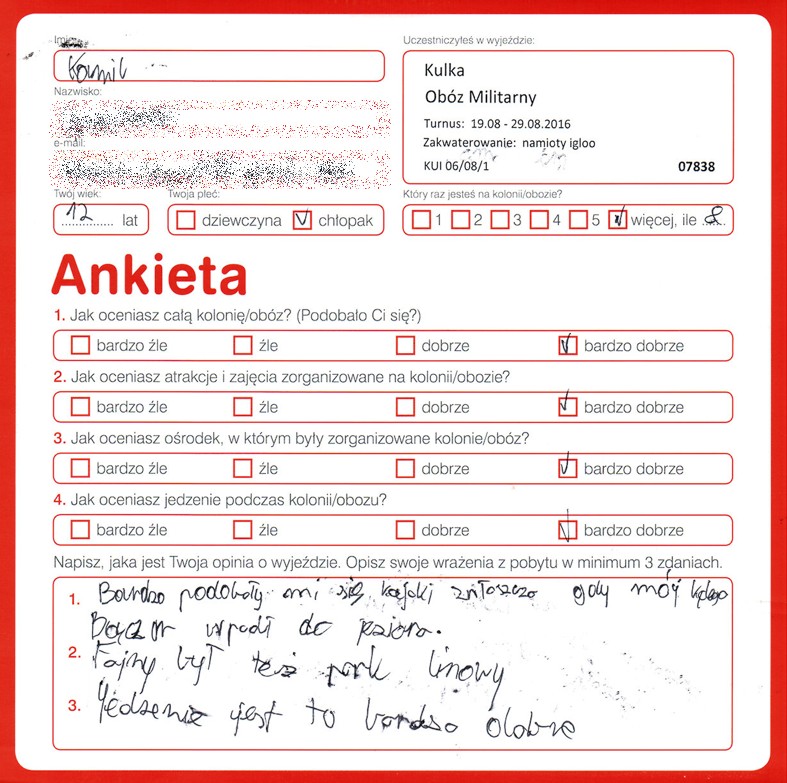 Imię:
Kamil
Uczestniczyłeś w wyjeździe:
Kulka
Obóz Militarny
Turnus: 19.08 - 29.08.2016
Zakwaterowanie: namioty igloo
KUI 06/08/1 07838
Nazwisko:
e-mail:
Twój wiek:
12 lat
Twoja płeć:
dziewczyna chłopak
Który raz jesteś na kolonii/obozie?
1 2 3 4 5 więcej, ile 8
Ankieta
1. Jak oceniasz całą kolonię/obóz? (Podobało Ci się?)
bardzo źle źle dobrze bardzo dobrze
2. Jak oceniasz atrakcje i zajęcia zorganizowane na kolonii/obozie?
bardzo źle źle dobrze bardzo dobrze
3. Jak oceniasz ośrodek, w którym były zorganizowane kolonie/obóz?
bardzo źle źle dobrze bardzo dobrze
4. Jak oceniasz jedzenie podczas kolonii/obozu?
bardzo źle źle dobrze bardzo dobrze
Napisz, jaka jest Twoja opinia o wyjeździe. Opisz swoje wrażenia z pobytu w minimum 3 zdaniach.
1. Bardzo podobały mi się kajaki gdy mój
wpadł do
2. Fajny był też park linowy
3. Jedzenie jest to bardzo dobre